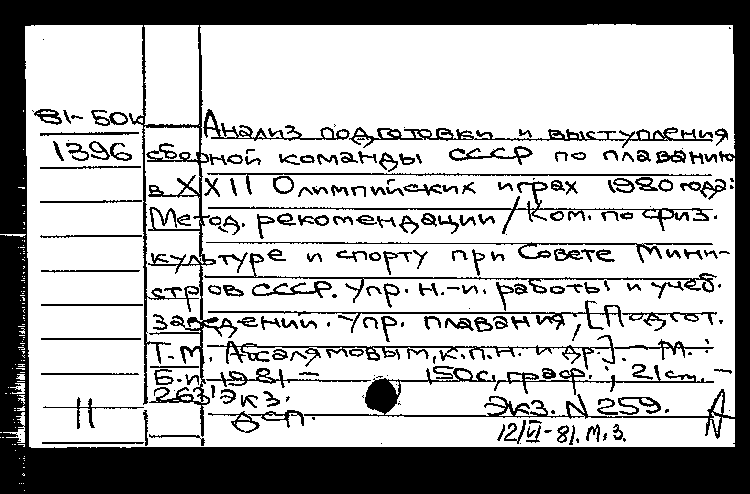 81-50к
1396
Анализ подготовки и выступления
сборной команды СССР по плаванию
в XXII Олимпийских играх 1980 года:
Метод. рекомендации / Ком. по физ.
культуре и спорту при Совете Мини-
стров СССР. Упр. н.-и. работы и учеб.
заведений. Упр. плавания; [Подгот.
Т.М. Абсалямовым, к.п.н. и др.]. - М.:
Б.и., 1981 - 150с., граф.; 21см. -
263 экз.
ДСП.
Экз. N 259.
11
12/VI-81. М.З.